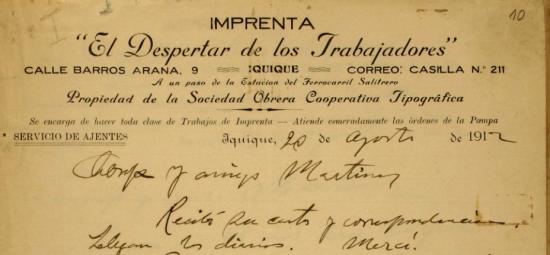 10
IMPRENTA
"El Despertar de los Trabajadores"
CALLE BARROS ARAÑA, 9 IQUIQUE CORREO: CASILLA N.º 211
A un paso de la Estacion del Ferrocarril Salitrero
Propiedad de la Sociedad Obrera Cooperativa Tipográfica
Se encarga de hacer toda clase de Trabajos de Imprenta — Atiende esmeradamente las órdenes de la Pampa
SERVICIO DE AJENTES Iquique, 20 de agosto de 1912
y amigo Martinez
Recibí su carta y correspondencia.
Llegan los diarios. Mercí.